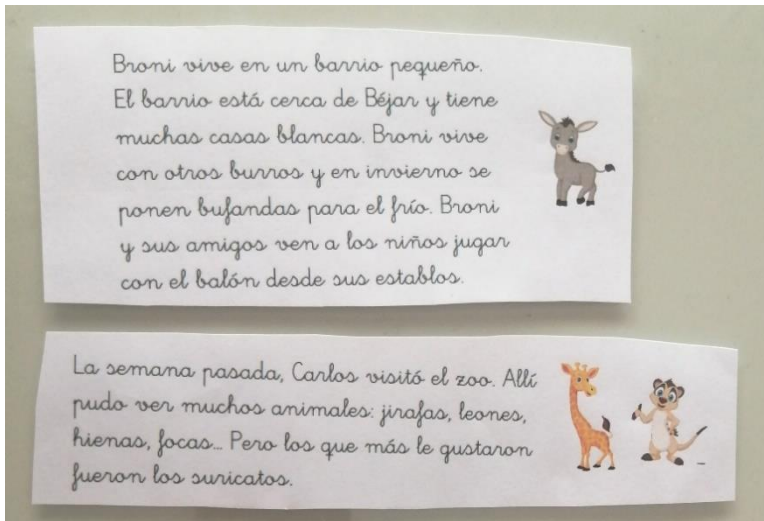 Broni vive en un barrio pequeño.
El barrio está cerca de Béjar y tiene
muchas casas blancas. Broni vive
con otros burros y en invierno se
ponen bufandas para el frío. Broni
y sus amigos ven a los niños jugar
con el balón desde sus establos.
La semana pasada, Carlos visitó el zoo. Allí
pudo ver muchos animales: jirafas, leones,
hienas, focas... Pero los que más le gustaron
fueron los suricatos.